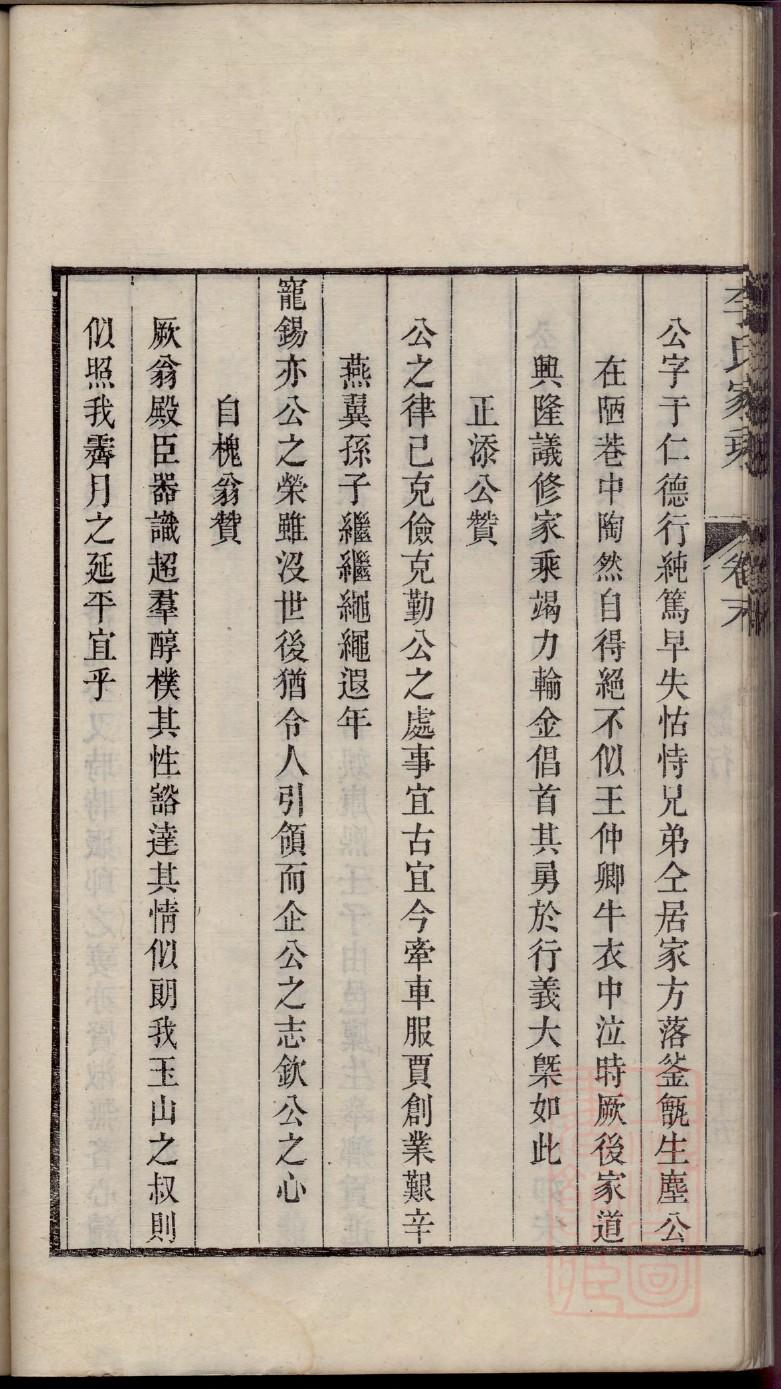 李氏家乘 卷末
公字于仁德行純篤早失怙恃兄弟仝居家方落釜甑生塵公
在陋巷中陶然自得絕不似王仲卿牛衣中泣時厥後家道
興隆議修家乘竭力輸金倡首其勇於行義大槩如此
正添公贊
公之律己克儉克勤公之處事宜古宜今牽車服賈創業艱辛
燕翼孫子繼繼繩繩遐年
寵錫亦公之榮雖沒世後猶令人引領而企公之志欽公之心
自槐翁贊
厥翁殿臣器識超羣醇樸其性豁達其情似朗我玉山之叔則
似照我霽月之延平宜乎